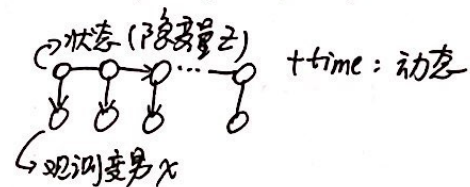 状态(隐变量z)
+time:动态
观测变量x